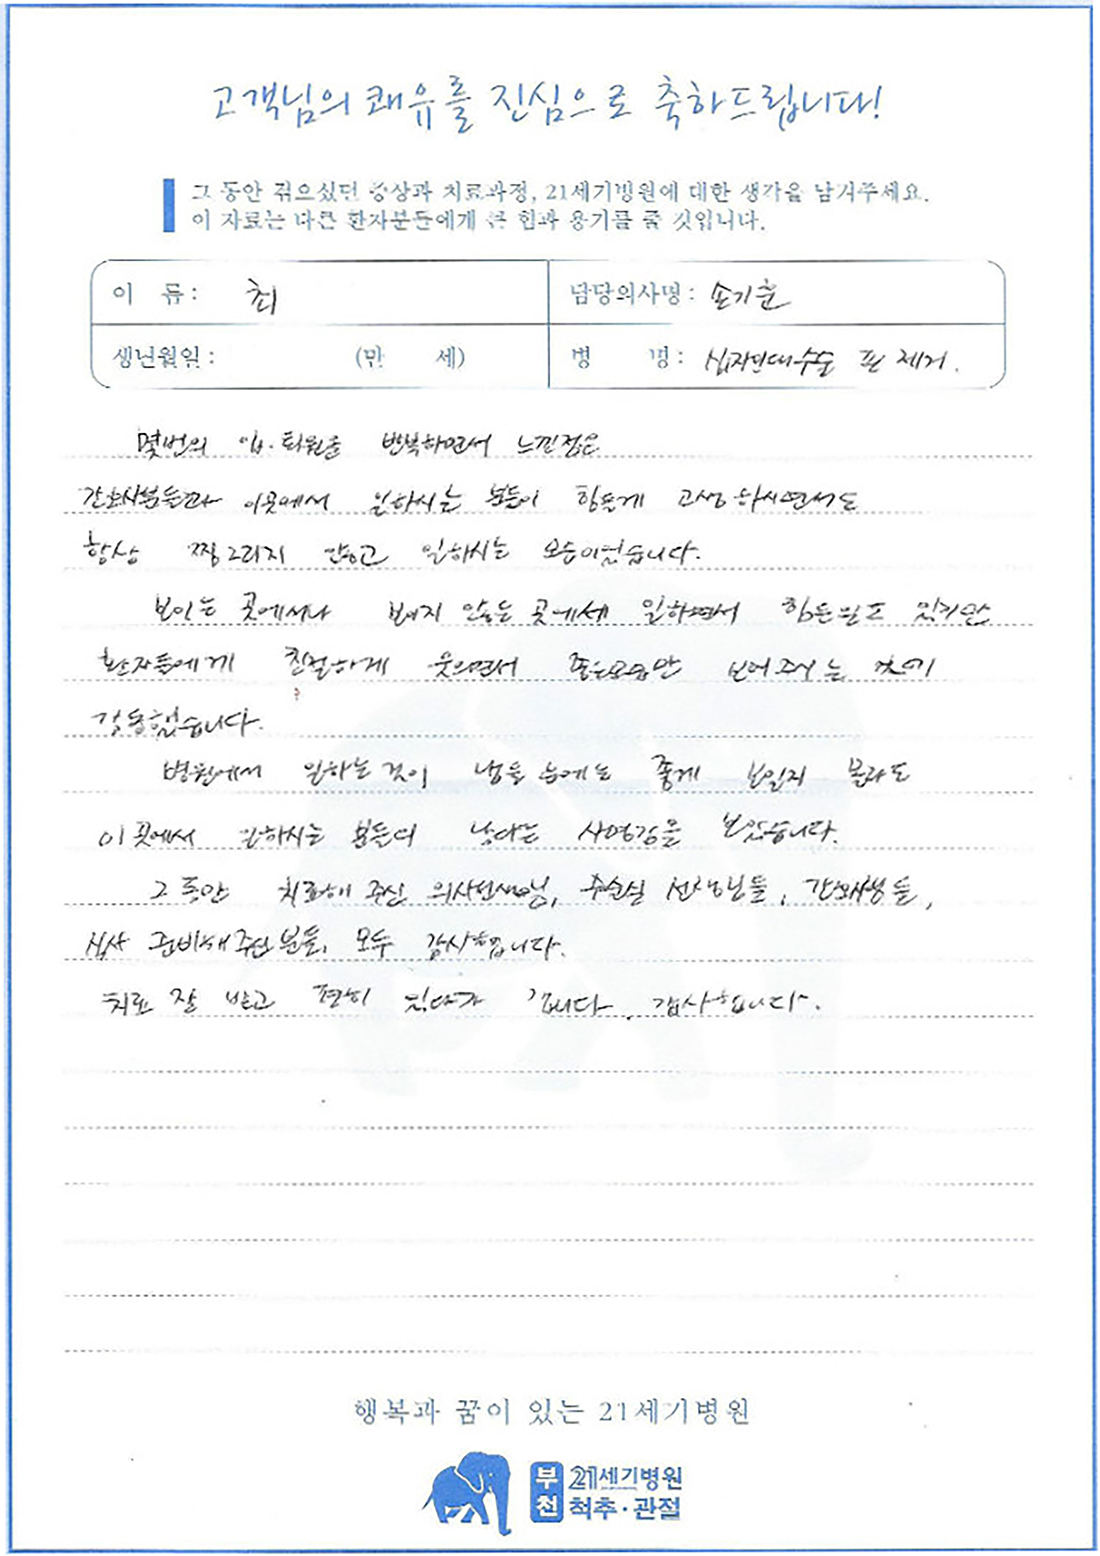 고객님의 쾌유를 진심으로 축하드립니다!
그 동안 겪으셨던 증상과 치료과정, 21세기병원에 대한 생각을 남겨주세요.
이 자료는 다른 환자분들에게 큰 힘과 용기를 줄 것입니다.
이 름 : 최
담당의사명 : 손기훈
생년월일 : (만 세)
병 명 : 십자인대수술 핀 제거.
몇번의 입·퇴원을 반복하면서 느낀점은
간호사분들과 이곳에서 일하시는 분들이 힘들게 고생하시면서도
항상 찡그리지 않고 일하시는 모습이었습니다.
보이는 곳에서나 보이지 않는 곳에세 일하면서 힘든일도 있지만
환자들에게 친절하게 웃으면서 좋은모습만 보여주시는 것에
감동했습니다.
병원에서 일하는 것이 남들 눈에는 좋게 보일지 몰라도
이 곳에서 일하시는 분들의 남다른 사명감을 보았습니다.
그 동안 치료해 주신 의사선생님, 수술실 선생님들, 간호사분들,
식사 준비해주신 분들, 모두 감사합니다.
치료 잘 받고 편히 있다가 갑니다. 감사합니다.
행복과 꿈이 있는 21세기병원
부천 21세기병원
척추·관절